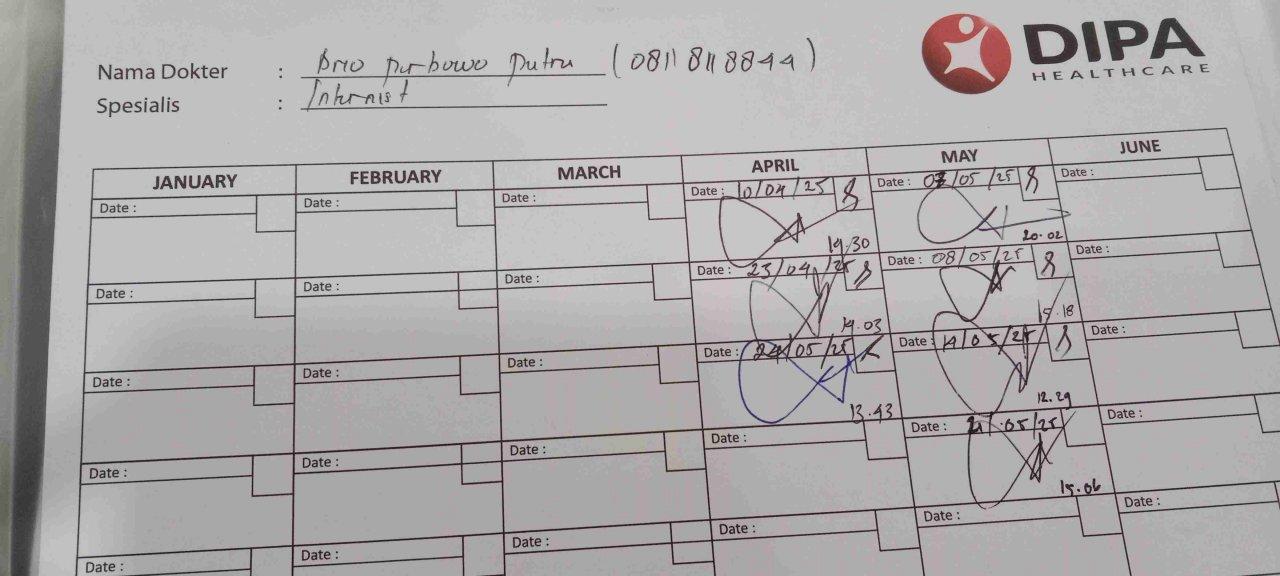 DIPA
HEALTHCARE
Nama Dokter : Brio purbowo putra (08118118844)
Spesialis : Internist
JANUARY FEBRUARY MARCH APRIL MAY JUNE
Date : Date : Date : Date : 10/04/25 Date : 07/05/25 Date :
19.30 20.02
Date : Date : Date : Date : 23/04/25 Date : 08/05/25 Date :
14.03 15.18
Date : Date : Date : Date : 24/05/25 Date : 14/05/25 Date :
13.43 12.29
Date : Date : Date : Date : Date : 21/05/25 Date :
15.06
Date : Date : Date : Date : Date : Date :